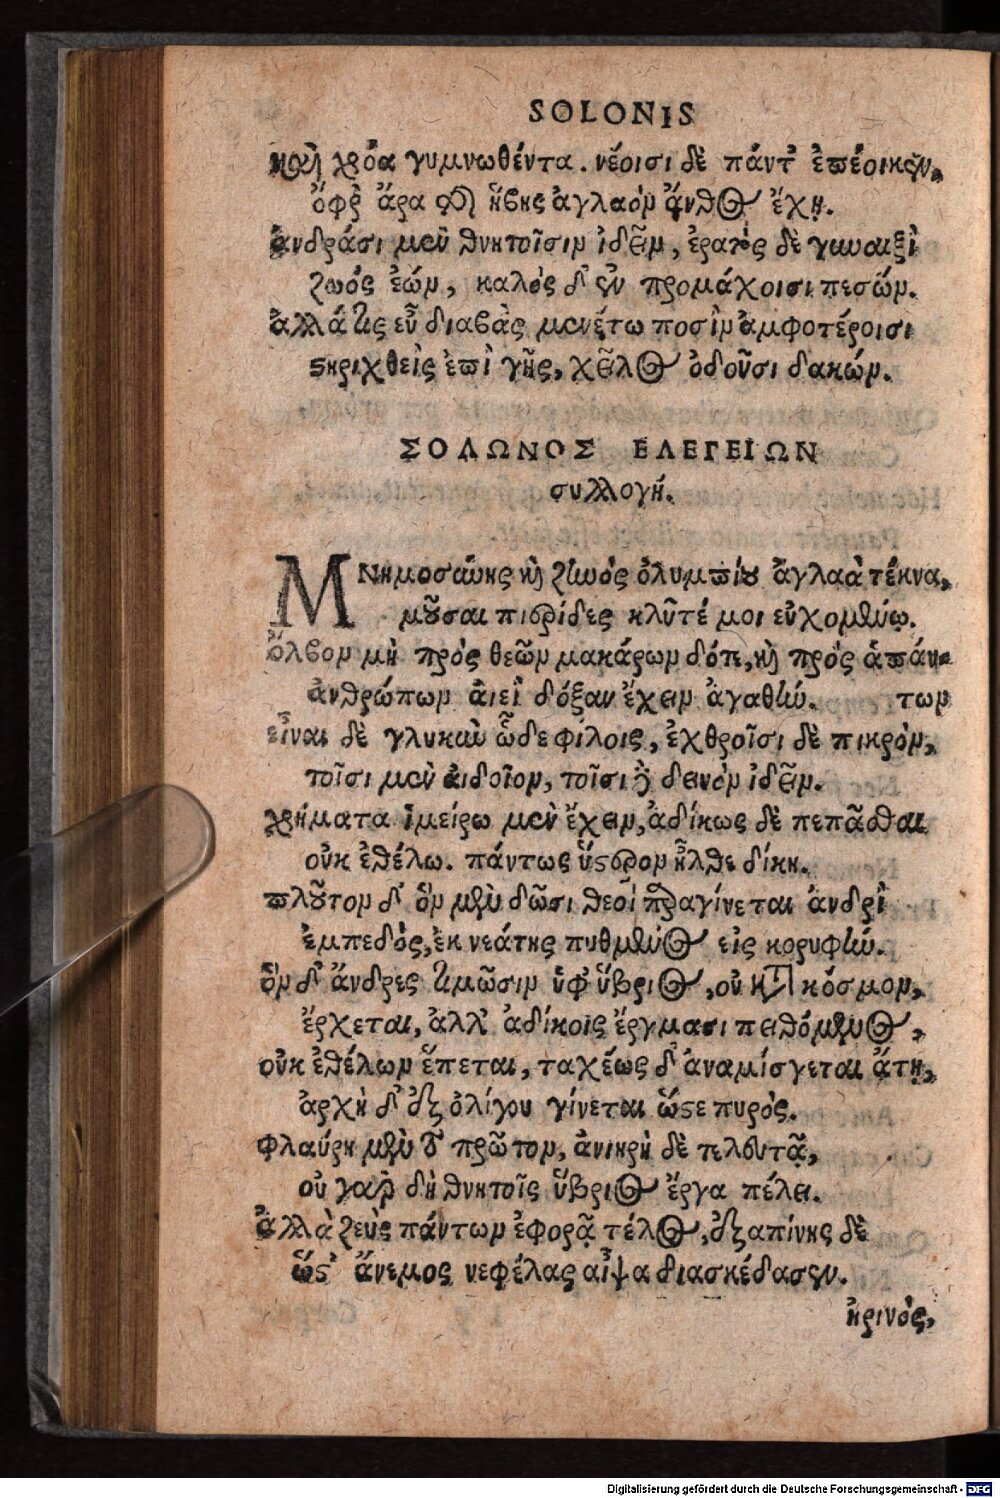 SOLONIS
καὶ χρόα γυμνωθέντα. νέοισι δὲ πάντ' ἐπέοικεν,
ὄφρ' ἄρα τῆς ἥβης ἀγλαὸν ἄνθος ἔχῃ.
ἀνδράσι μὲν θνητοῖσιν ἰδεῖν, ἐρατὸς δὲ γυναιξὶ
ζωός ἐών, καλὸς δ' ἐν προμάχοισι πεσών.
ἀλλά τις εὖ διαβὰς μενέτω ποσὶν ἀμφοτέροισι
στηριχθεὶς ἐπὶ γῆς, χεῖλος ὀδοῦσι δακών.
ΣΟΛΩΝΟΣ ΕΛΕΓΕΙΩΝ
συλλογή.
ΜΝημοσύνης καὶ ζηνὸς ὀλυμπίου ἀγλαὰ τέκνα,
μοῦσαι πιερίδες κλῦτέ μοι εὐχομένῳ.
ὄλβον μὴ πρὸς θεῶν μακάρων δότε, καὶ πρὸς ἁπάν-
ἀνθρώπων αἰεὶ δόξαν ἔχειν ἀγαθήν. των
εἶναι δὲ γλυκὺν ὧδε φίλοις, ἐχθροῖσι δὲ πικρόν,
τοῖσι μὲν αἰδοῖον, τοῖσι δὲ δεινὸν ἰδεῖν.
χρήματα ἱμείρω μὲν ἔχειν, ἀδίκως δὲ πεπᾶσθαι
οὐκ ἐθέλω. πάντως ὕστερον ἦλθε δίκη.
πλοῦτον δ' ὃν μὲν δῶσι θεοὶ παραγίνεται ἀνδρὶ
ἔμπεδος, ἐκ νεάτης πυθμένος εἰς κορυφήν.
ὃν δ' ἄνδρες τιμῶσιν ὑφ' ὕβριος, οὐ κατὰ κόσμον,
ἔρχεται, ἀλλ' ἀδίκοις ἔργμασι πειθόμενος,
οὐκ ἐθέλων ἕπεται, ταχέως δ' ἀναμίσγεται ἄτῃ,
ἀρχὴ δ' ἐξ ὀλίγου γίνεται ὥστε πυρός.
φλαύρη μὲν τὸ πρῶτον, ἀνιηρὴ δὲ τελευτᾷ,
οὐ γὰρ δὴ θνητοῖς ὕβριος ἔργα πέλει.
ἀλλὰ ζεὺς πάντων ἐφορᾷ τέλος, ἐξαπίνης δὲ
ὥστ' ἄνεμος νεφέλας αἶψα διασκέδασεν.
ἠρινός,
Digitalisierung gefördert durch die Deutsche Forschungsgemeinschaft - DFG